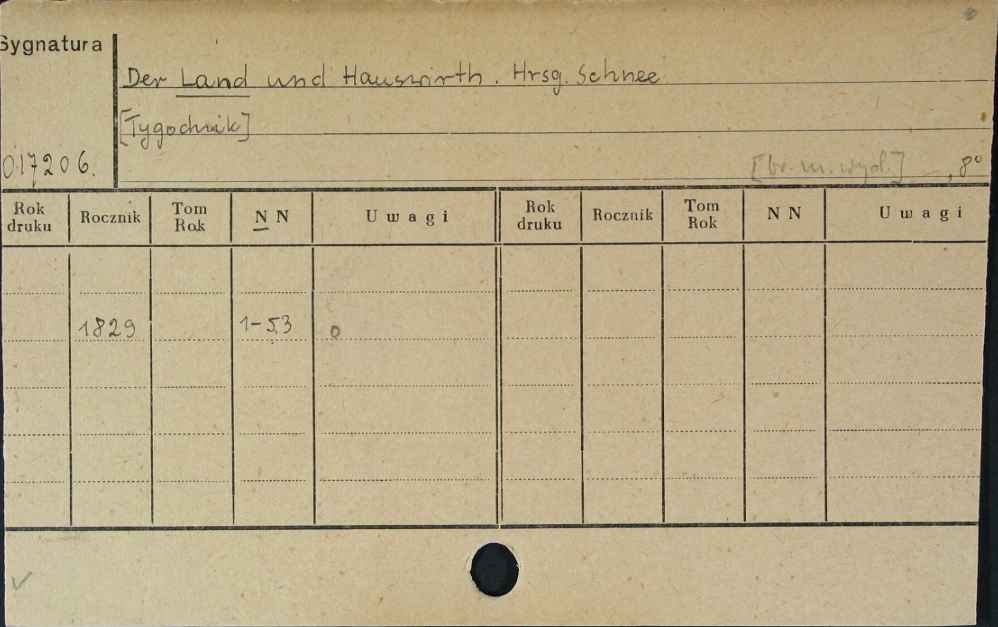 Sygnatura
Der Land und Hauswirth. Hrsg. Schnee
[Tygodnik]
017206.
[br. m. wyd.] , 8°
Rok druku Rocznik Tom Rok N N Uwagi Rok druku Rocznik Tom Rok N N Uwagi
1829 1-53 o